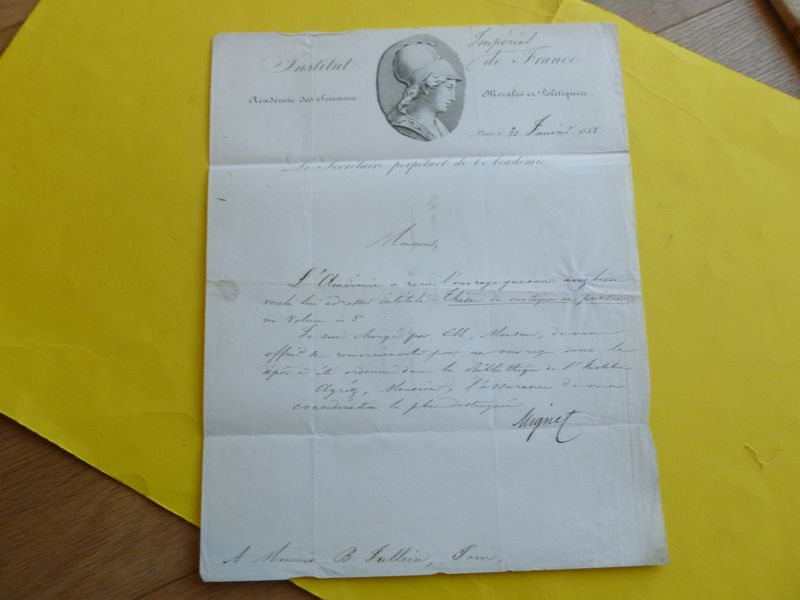 Institut Impérial de France
Académie des Sciences Morales et Politiques.
Paris, le 30 Janvier 1858
Le Secrétaire perpétuel de l'Académie
Monsieur,
L'Académie a reçu l'ouvrage que vous avez bien
voulu lui adresser intitulé Thèses de critique et poésies
un Volume in 8°
Je suis chargé par Elle, Monsieur, de vous
offrir des remerciements pour cet ouvrage dont le
dépôt a été ordonné dans la Bibliothèque de l'Institut
Agréez, Monsieur, l'assurance de ma
considération la plus distinguée
Mignet
A Monsieur B Jullien,